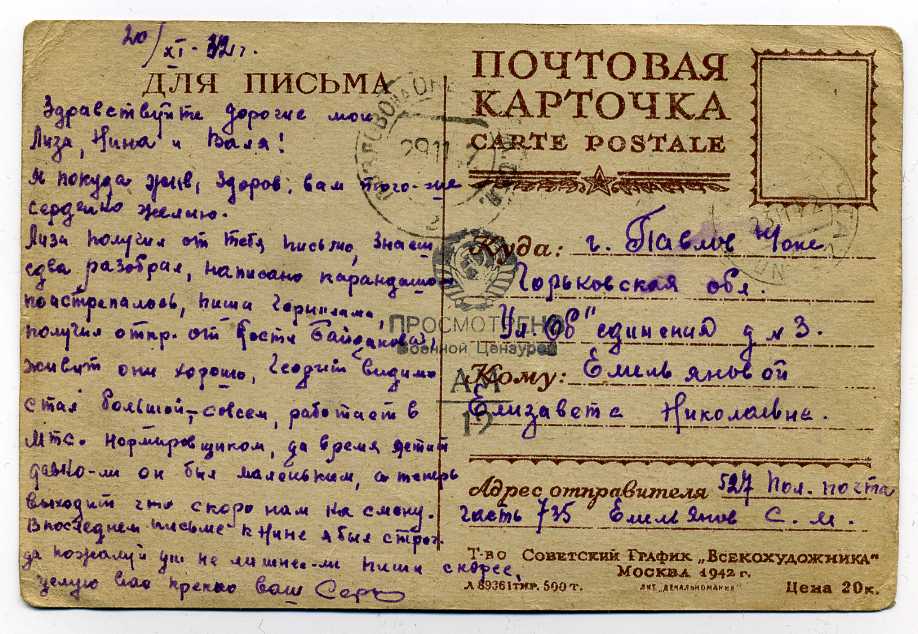 20/XI-42г.
ДЛЯ ПИСЬМА
Здравствуйте дорогие мои
Лиза, Нина и Валя!
Я покуда жив, здоров, вам того-же
сердечно желаю.
Лиза получил от тебя письмо, знаеш
едва разобрал, написано карандашом
поистрепалось, пиши чернилами,
получил откр. от Кости Байдакова,
живут они хорошо, Георгий видимо
стал большой, совсем, работает в
МТС. нормировщиком, да время летит
давно-ли он был маленьким, а теперь
выходит что скоро нам на смену.
В последнем письме к Нине я был строг
да пожалуй уж не лишнее-ли пиши скорее,
целую вас крепко ваш
ПОЧТОВАЯ
КАРТОЧКА
CARTE POSTALE
29 11
23 11 42
Куда: г. Павлов Оке
Горьковская обл.
Ул. Об"единения д N 3.
ПРОСМОТРЕНО
Военной Цензурой
Кому: Емельяновой
Елизавете Николаевне.
19
Адрес отправителя 527 Пол. почта
часть 735 Емельянов С. М.
Т-во Советский График „Всекохудожника"
Москва 1942 г.
Л 89361 тир. 500 т. лит. „Декалькомания" Цена 20к.